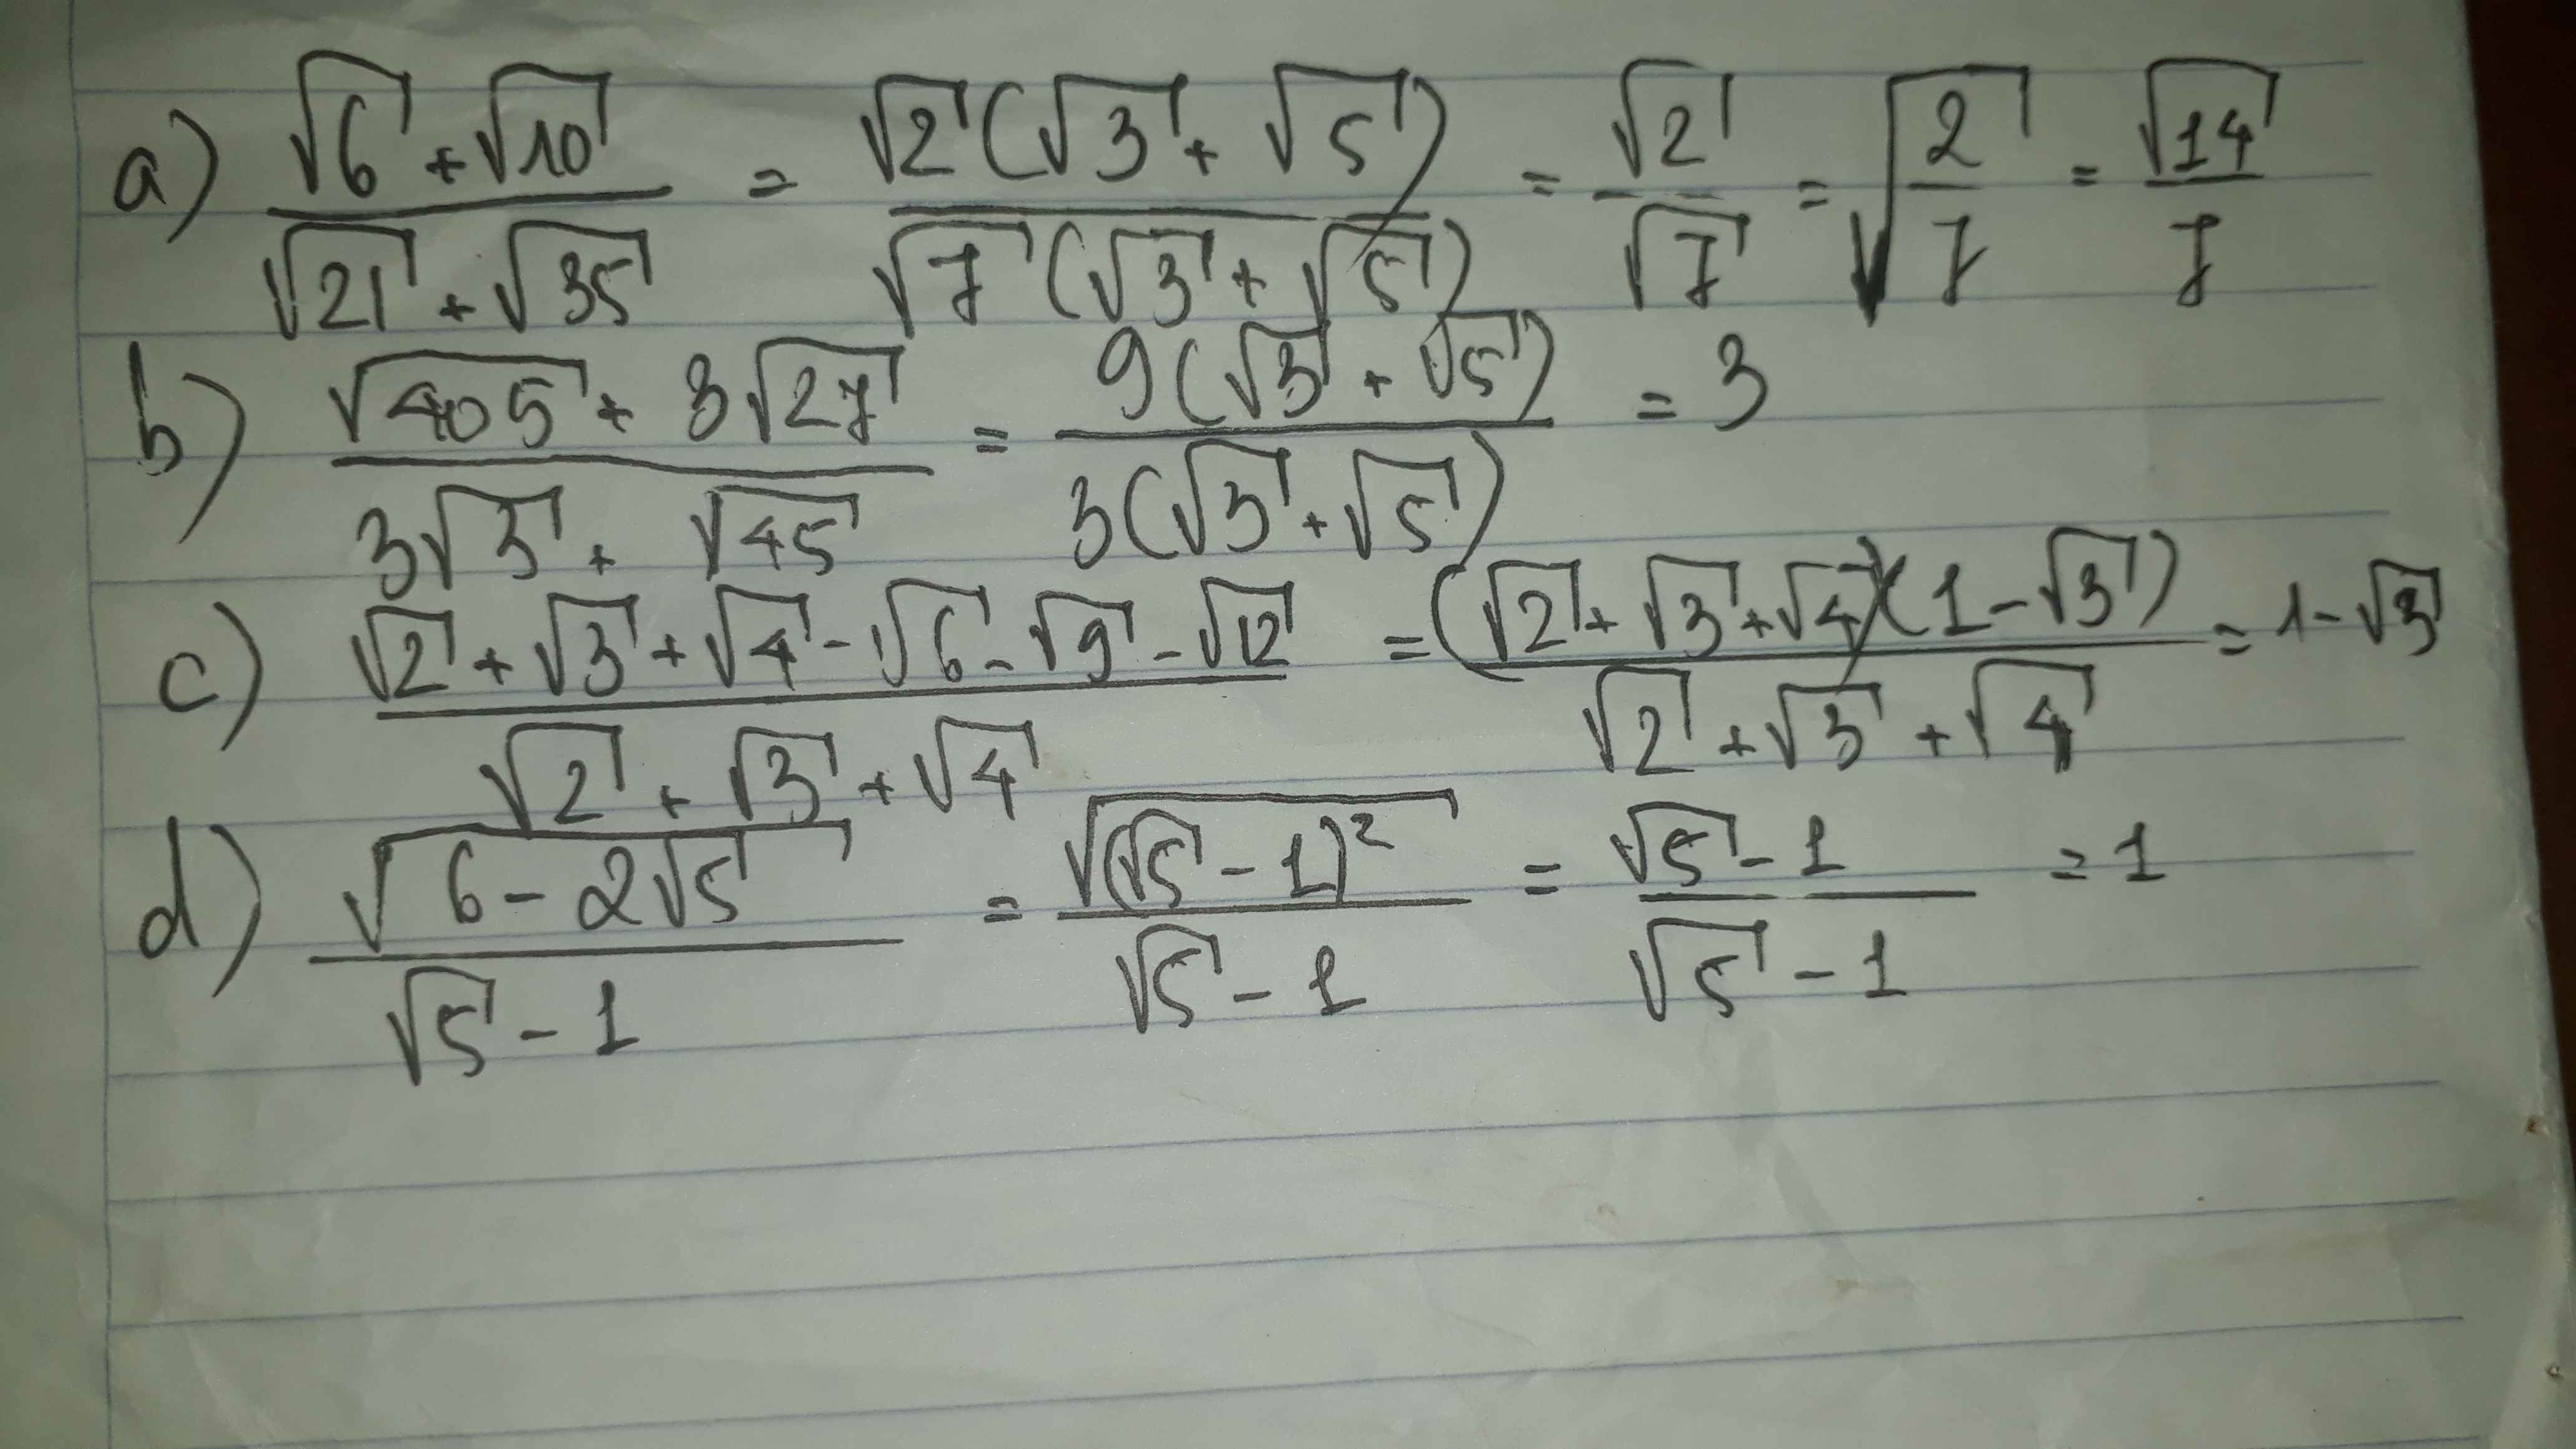 a) (√6 + √10)/(√21 + √35) = √2(√3 + √5)/√7(√3 + √5) = √2/√7 = √(2/7) = √14/7
b) (√405 + 3√27)/(3√3 + √45) = 9(√3 + √5)/3(√3 + √5) = 3
c) (√2 + √3 + √4 - √6 - √9 - √12)/(√2 + √3 + √4) = (√2 + √3 + √4)(1 - √3)/(√2 + √3 + √4) = 1 - √3
d) √(6 - 2√5)/(√5 - 1) = √((√5 - 1)²)/(√5 - 1) = (√5 - 1)/(√5 - 1) = 1